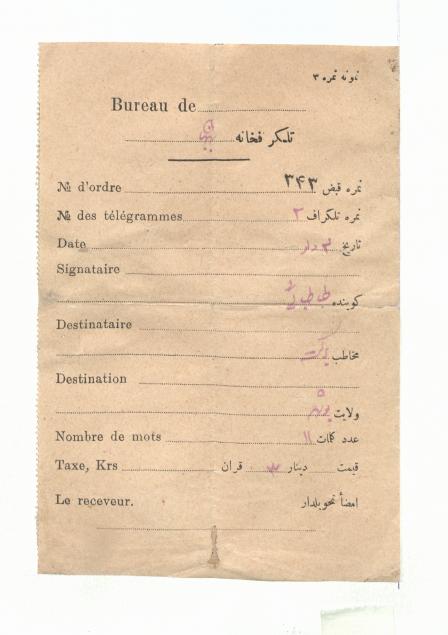 نمونه نمره ۳
Bureau de
تلگرافخانه
№ d'ordre نمره قبض ۳۴۳
№ des télégrammes نمره تلگراف ۲
Date تاریخ
Signataire
گوینده طباطبائی
Destinataire
مخاطب
Destination
ولایت
Nombre de mots عدد کلمات ۱۱
Taxe, Krs قیمت دینار ۳ قران
Le receveur. امضأ تحویلدار